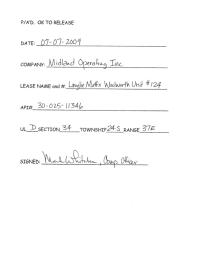 P/A'D. OK TO RELEASE
DATE: 07-07-2009
COMPANY: Midland Operating Inc
LEASE NAME and #: Langlie Mattix Woolworth Unit #124
API# 30-025-11346
UL D SECTION 34 TOWNSHIP 24-S RANGE 37E
SIGNED: Mark Whitaker, Comp Officer